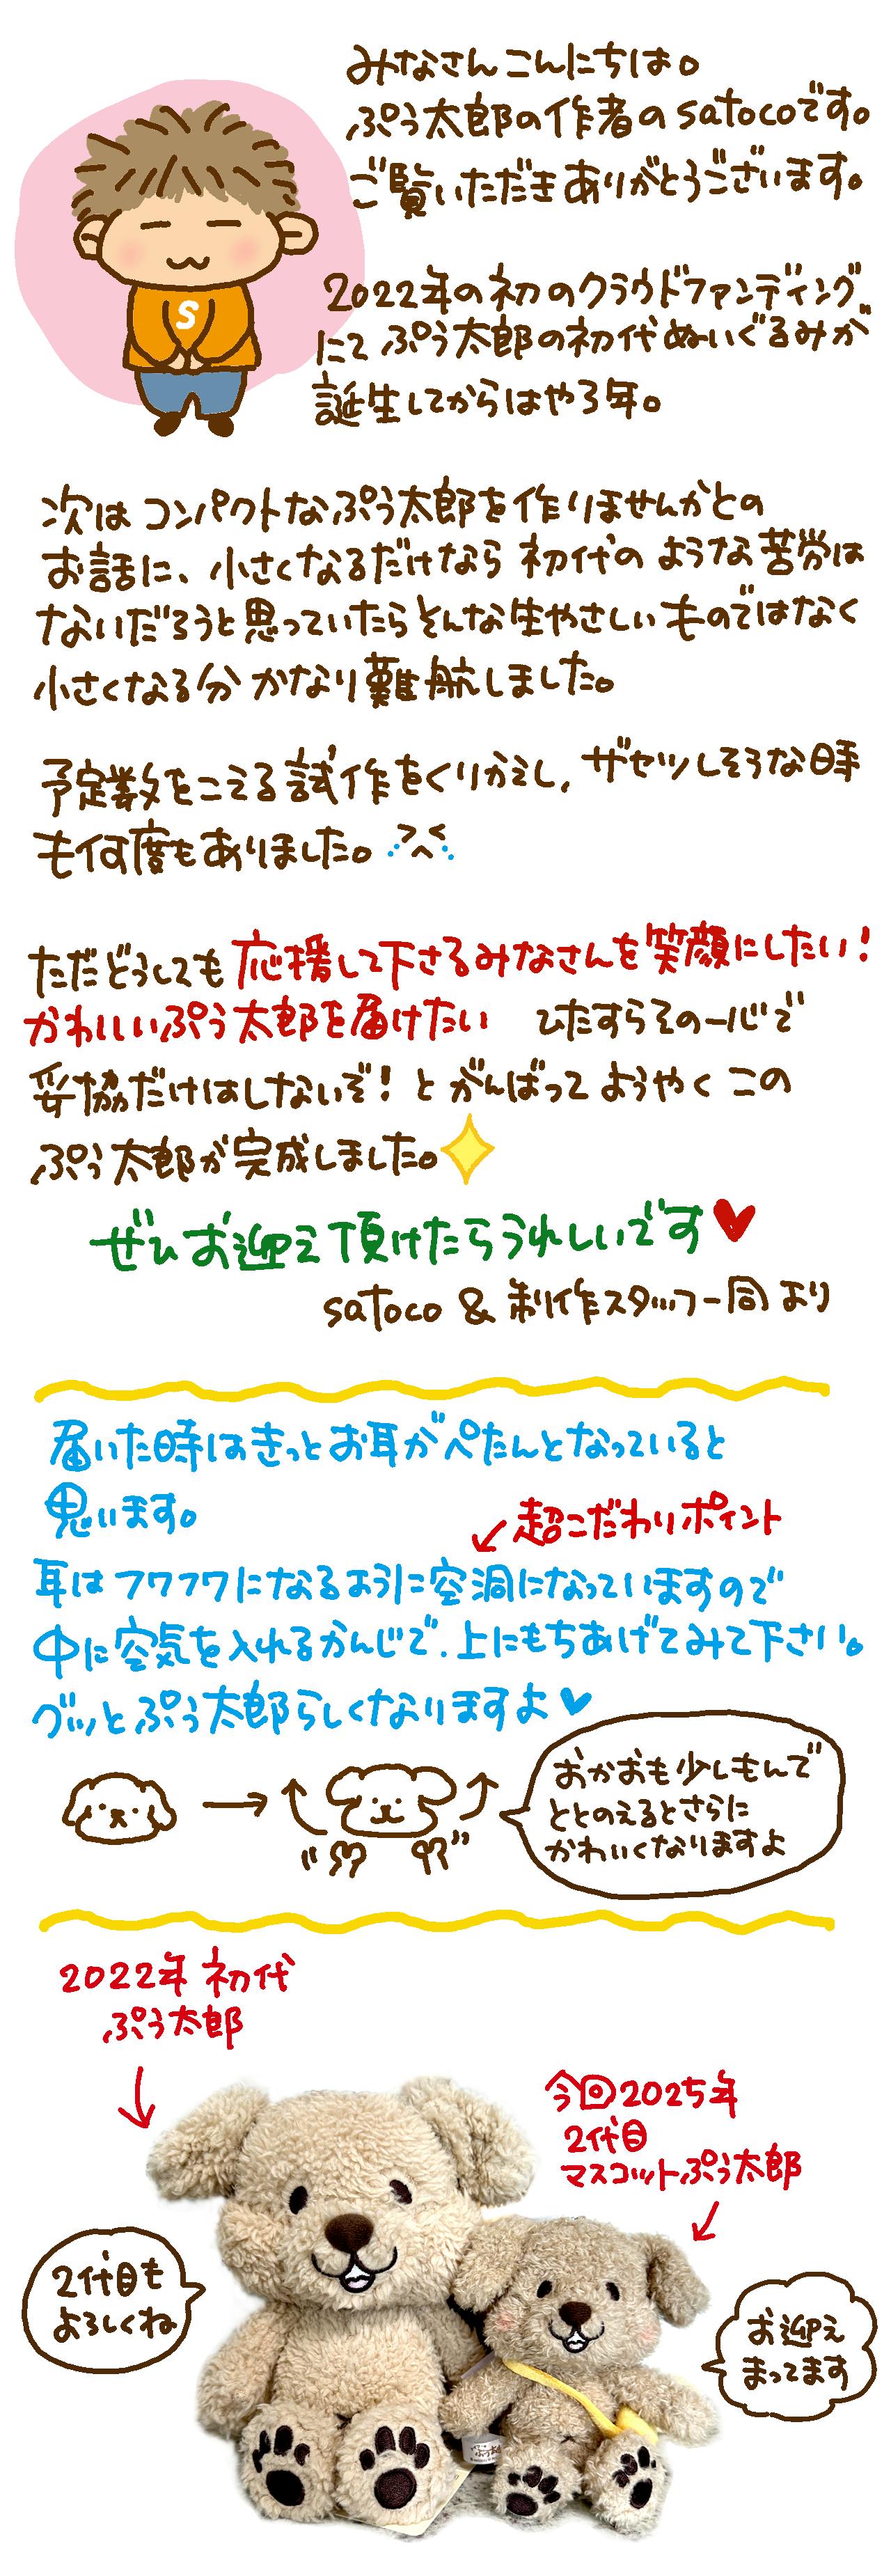 みなさんこんにちは。
ぷう太郎の作者のsatocoです。
ご覧いただきありがとうございます。
2022年の初のクラウドファンディング
にて ぷう太郎の初代ぬいぐるみが
誕生してからはや3年。
次は コンパクトなぷう太郎を作りませんかとの
お話に、小さくなるだけなら 初代の ような苦労は
ないだろうと思っていたらそんな生やさしいものではなく
小さくなる分 かなり難航しました。
予定数をこえる試作をくりかえし, ザセツしそうな時
も何度もありました。
ただどうしても 応援して下さるみなさんを笑顔にしたい!
かわいいぷう太郎を届けたい ひたすらその一心で
妥協だけはしないぞ! と がんばって ようやく この
ぷう太郎が完成しました。
ぜひお迎え頂けたらうれしいです♥
satoco & 制作スタッフ一同より
届いた時はきっとお耳がぺたんとなっていると
思います。
超こだわりポイント
耳はフワフワになるように空洞になっていますので
中に空気を入れるかんじで、上にもちあげてみて下さい。
グッとぷう太郎らしくなりますよ♥
おかおも少しもんで
ととのえるとさらに
かわいくなりますよ
2022年 初代
ぷう太郎
今回2025年
2代目
マスコットぷう太郎
2代目も
よろしくね
お迎え
まってます
S